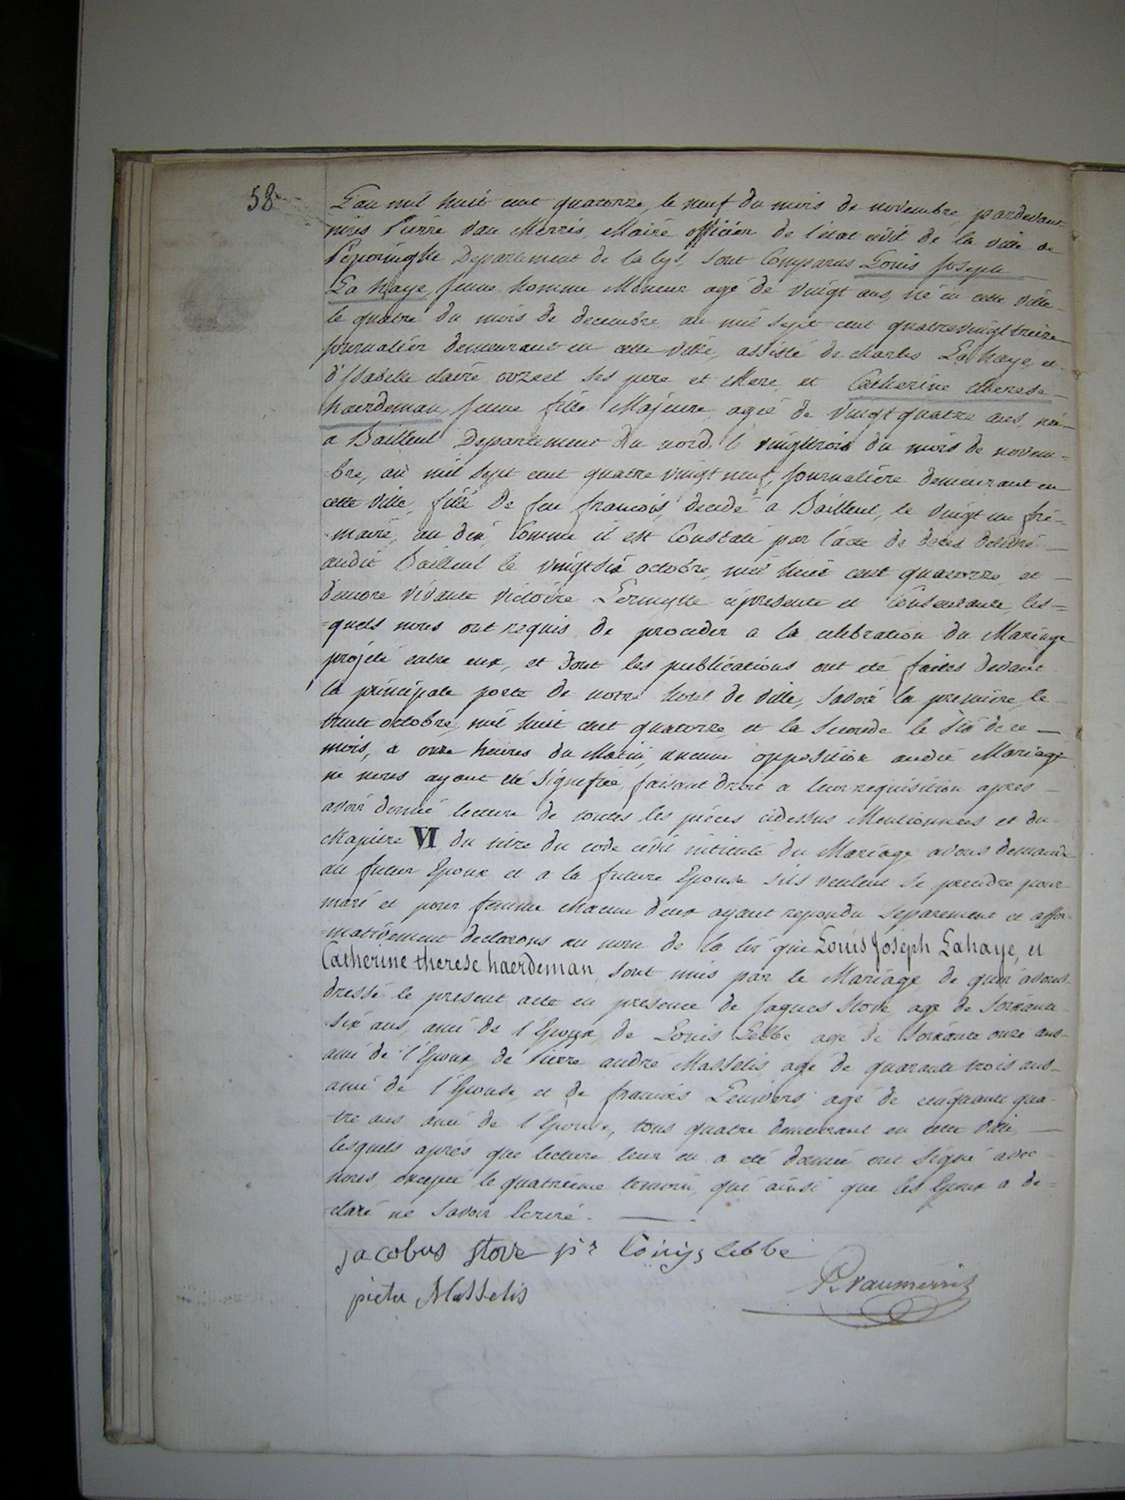 58
L'an mil huit cent quatorze, le neuf du mois de novembre, pardevant
nous Pierre Van Merris, Maire officier de l'état civil de la ville de
Poperinghe Departement de la Lys, sont Comparus Louis Joseph
La haye, jeune homme Mineur agé de vingt ans, né en cette ville
le quatre du mois de decembre an mil sept cent quatrevingt treize
journalier demeurant en cette ville, assisté de charles La haye, et
d'Isabelle claire ses pere et Mere, et Catherine therese
haerdeman, jeune fille Majeure, agée de vingt quatre ans, née
a Bailleul Departement du nord, le vingttrois du mois de novem-
bre, an mil sept cent quatre vingt neuf, journaliére demeurant en
cette ville, fille de feu francois, decidé a Bailleul, le vingt un fri-
maire, an dix, Comme il est Constaté par l'acte de deces delivré
audit Bailleul le vingtsix octobre, mil huit cent quatorze, et
d'encore vivante victoire cipresente et consentante, les-
quels nous ont requis de proceder a la celebration du Mariage
projeté entre eux, et dont les publications ont été faites devant
la principale porte de notre hotel de ville, savoir la premiere, le
trente octobre, mil huit cent quatorze, et la seconde le six de ce
mois, a onze heures du Matin, aucune opposition audit Mariage
ne nous ayant été signifiée, faisant droit a leur requisition apres
avoir donné lecture de toutes les pieces cidessus Mentionnées et du
chapitre VI du titre du code civil intitulé du Mariage avons demandé
au futur Epoux et a la future Epouse s'ils veulent se prendre pour
mari et pour femme chacun d'eux ayant repondu separement et affir-
mativement declarons au nom de la loi que Louis Joseph Lahaye, et
Catherine therese haerdeman, sont unis par le Mariage de quoi avons
dressé le present acte en presence de Jaques Stove, agé de soixante
six ans, ami de l'Epoux, de Louis Lebbe agé de soixante onze ans
ami de l'Epoux, de Pierre andré Masselis, agé de quarante trois ans
ami de l'Epouse, et de francois agé de cinquante qua-
tre ans ami de l'Epouse, tous quatre demeurant en cette ville
lesquels aprés que lecture leur en a été donnée ont signé avec
nous excepté le quatriéme temoin, qui ainsi que les Epoux a de-
claré ne savoir Ecrire.
jacobus stove pr louijs lebbe
pieter Masselis P. vanmerris